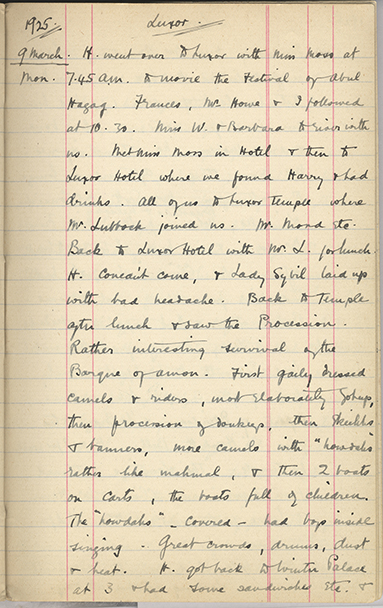 1925. Luxor.
9 March. H. went over to Luxor with Miss Moss at
Mon. 7.45 A.M. to movie the Festival of Abul
Hagag. Frances, Mr. Howe & I followed
at 10.30. Miss W. & Barbara to river with
us. Met Miss Moss in Hotel & then to
Luxor Hotel where we found Harry & had
drinks. All of us to Luxor Temple where
Mr. Lubbock joined us. Mr. Mond etc.
Back to Luxor Hotel with Mr. L. for lunch.
H. couldn't come, & Lady Sybil laid up
with bad headache. Back to Temple
after lunch & saw the Procession.
Rather interesting survival of the
Barque of Amon. First gaily dressed
camels & riders, most elaborately gotup,
then procession of donkeys, then Sheikhs
& banners, more camels with "howdahs"
rather like mahmal, & then 2 boats
on carts, the boats full of children.
The "howdahs" - covered - had boys inside
singing. Great crowds, drums, dust
& heat. H. got back to Winter Palace
at 3 & had some sandwiches etc. &